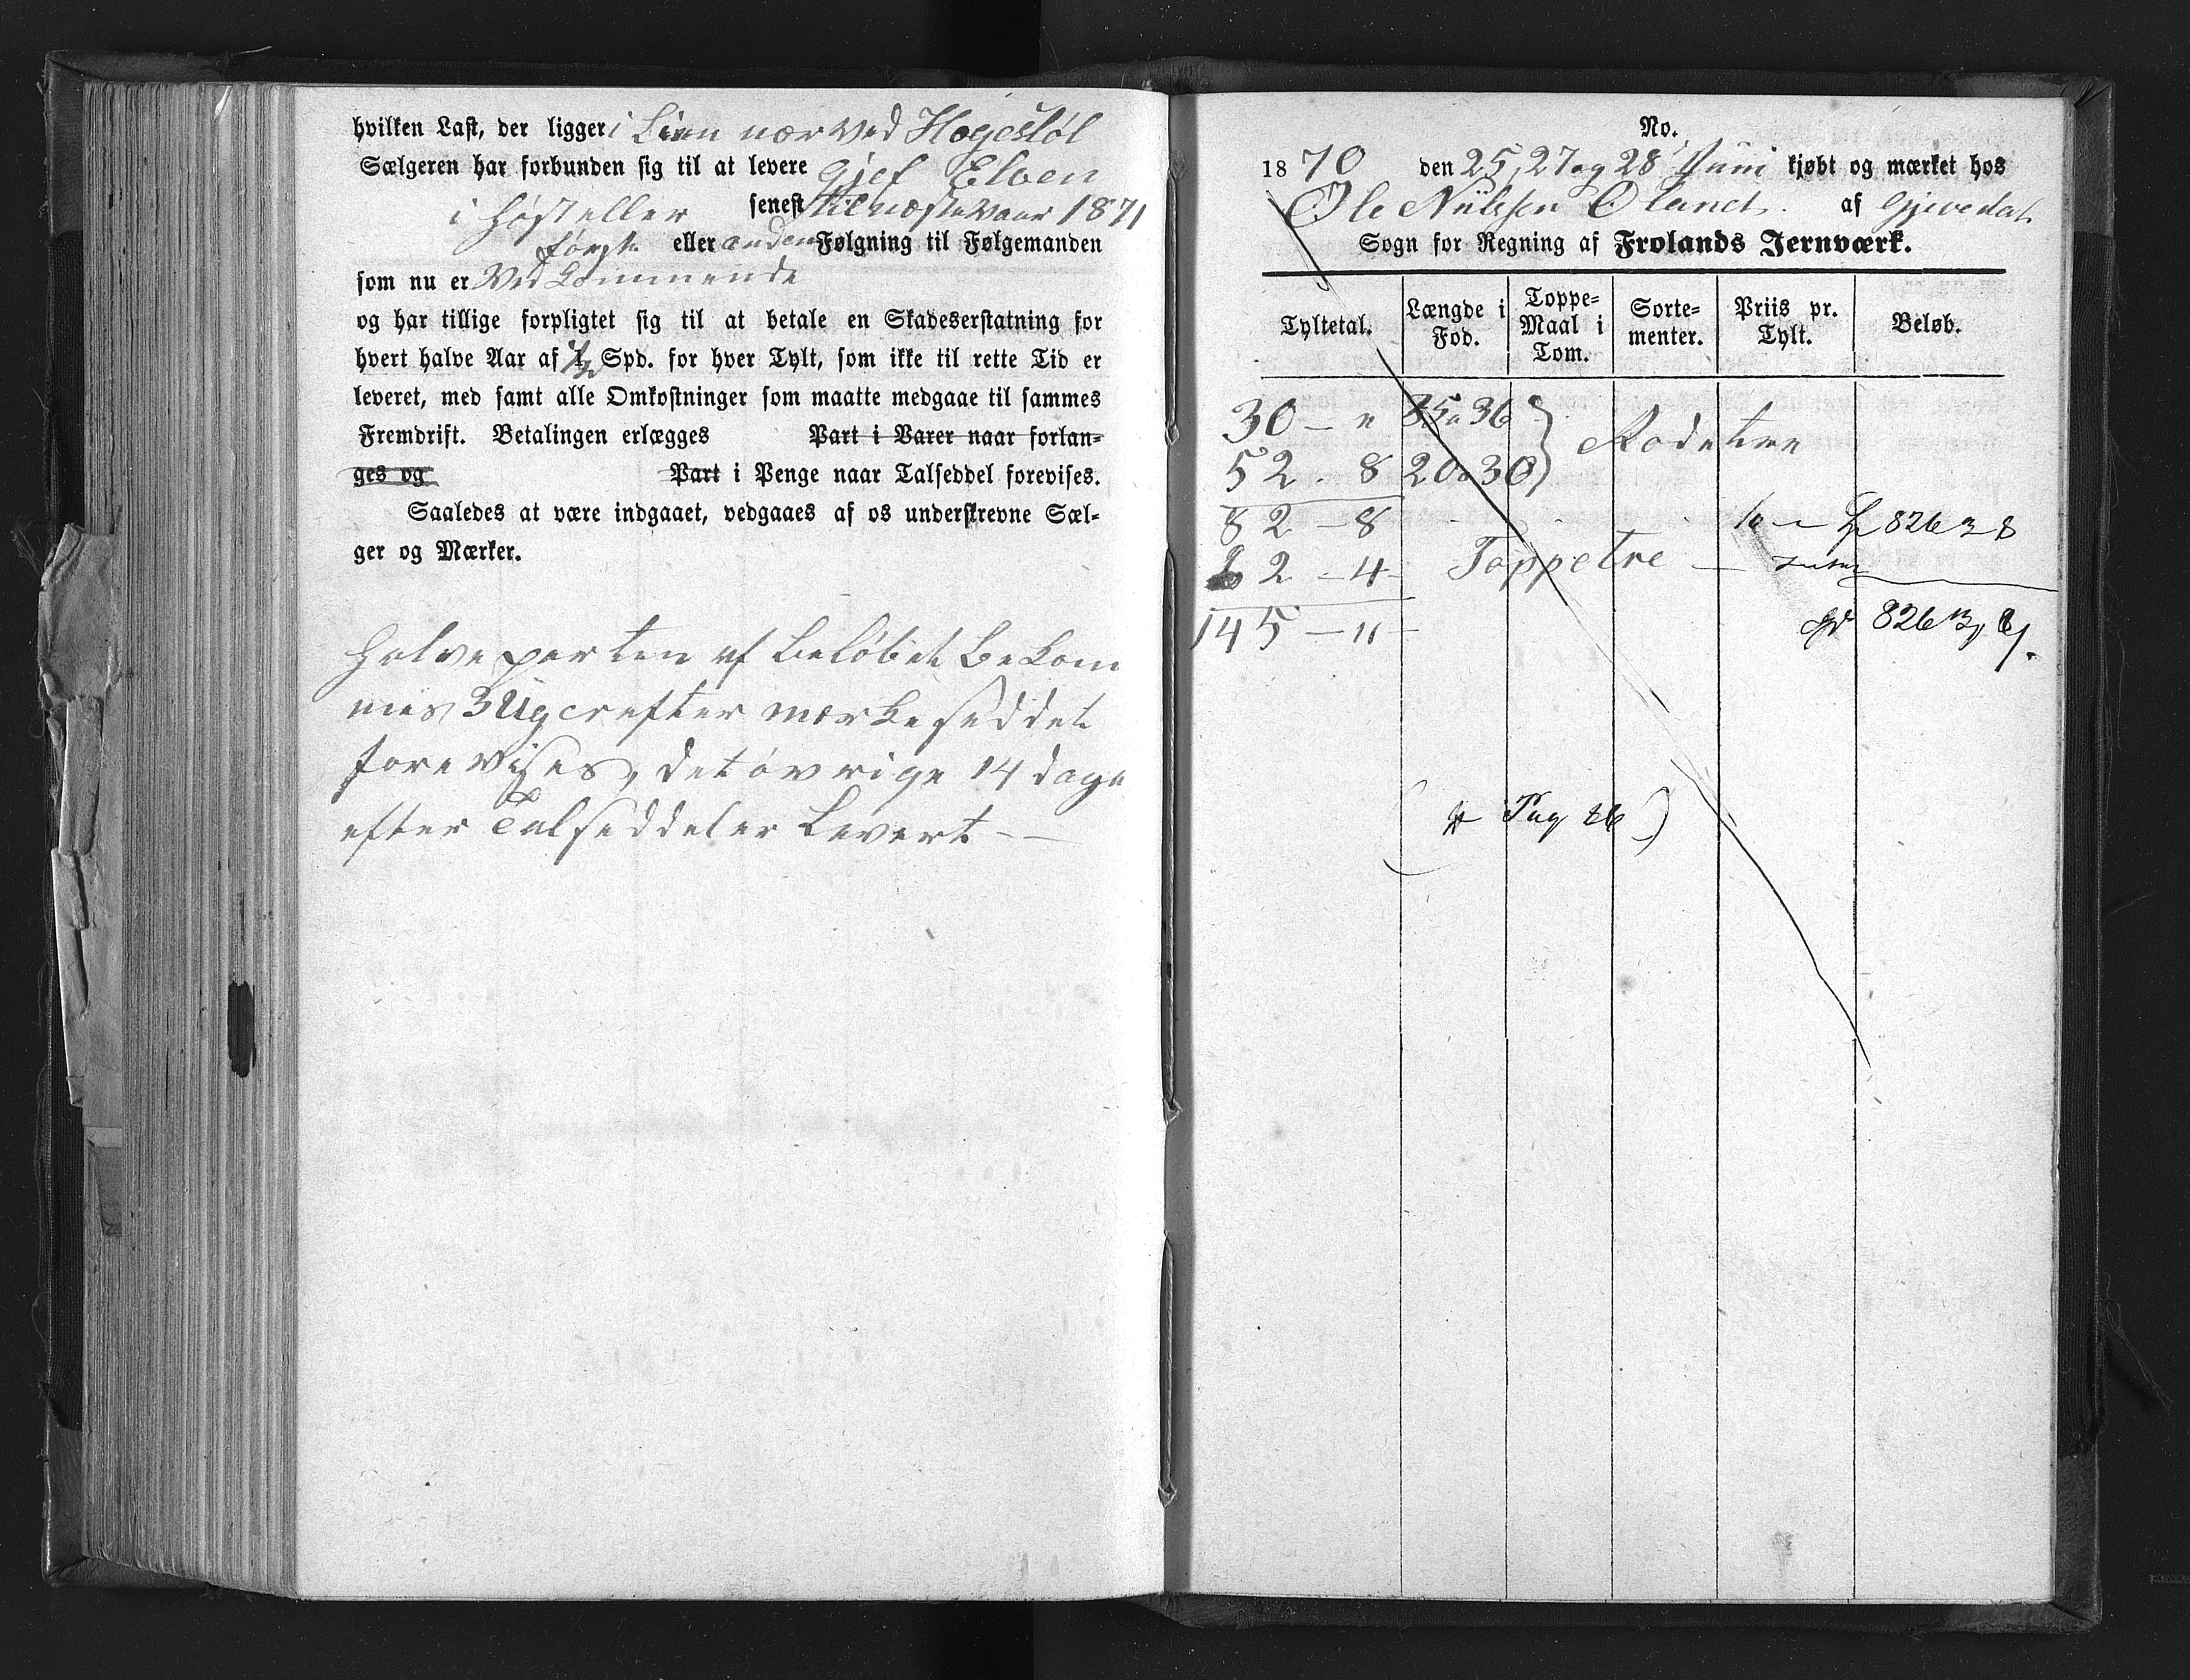 hvilken Last, der ligger i Lien nær ved Hogestøl
Sælgeren har forbunden sig til at levere Gjef Elven
i Høst eller senest til næste Vaar 1871
første eller anden Følgning til Følgemanden
som nu er Vedkommende
og har tillige forpligtet sig til at betale en Skadeserstatning for
hvert halve Aar af 1/2 Spd. for hver Tylt, som ikke til rette Tid er
leveret, med samt alle Omkostninger som maatte medgaae til sammes
Fremdrift. Betalingen erlægges Part i Varer naar forlan-
ges og Part i Penge naar Talseddel forevises.
Saaledes at være indgaaet, vedgaaes af os underskrevne Sæl-
ger og Mærker.
Halveparten af Beløbet bekom
mes 3 Uger efter mærkeseddel
forevises, det øvrige 14 dage
efter Talseddel er Levert - -
No.
1870 den 25, 27 og 28 Juni kjøbt og mærket hos
Ole Nielsen Øland. af Gjevedal
Sogn for Regning af Frolands Jernværk.
Tyltetal. Længde i Fod. Toppe-Maal i Tom. Sorte-menter. Priis pr. Tylt. Beløb.
30 - " 35 a 36
Rodetre
52 - 8 20 a 30
82 - 8 10 - 826 3 8
62 - 4 - Toppetre -
145 - " - 826 3 8.
( Pag 26 )